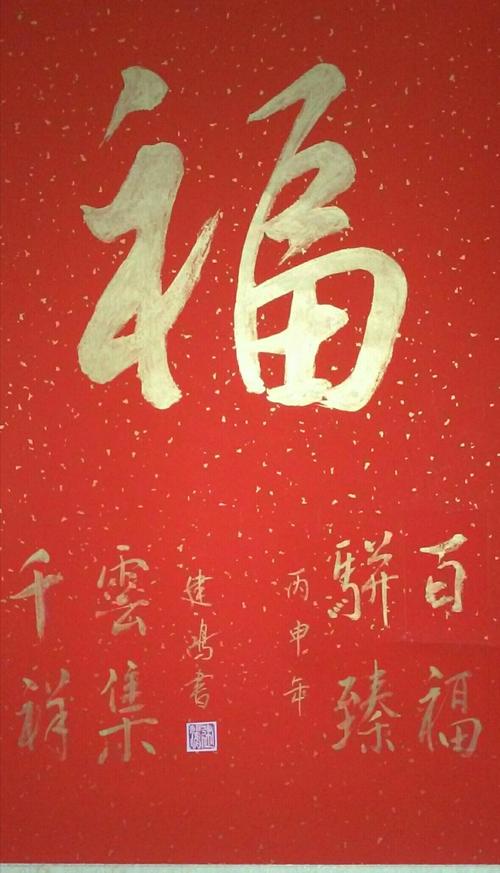 福
百福
駢臻
千祥
雲集
丙申年
建鴻書